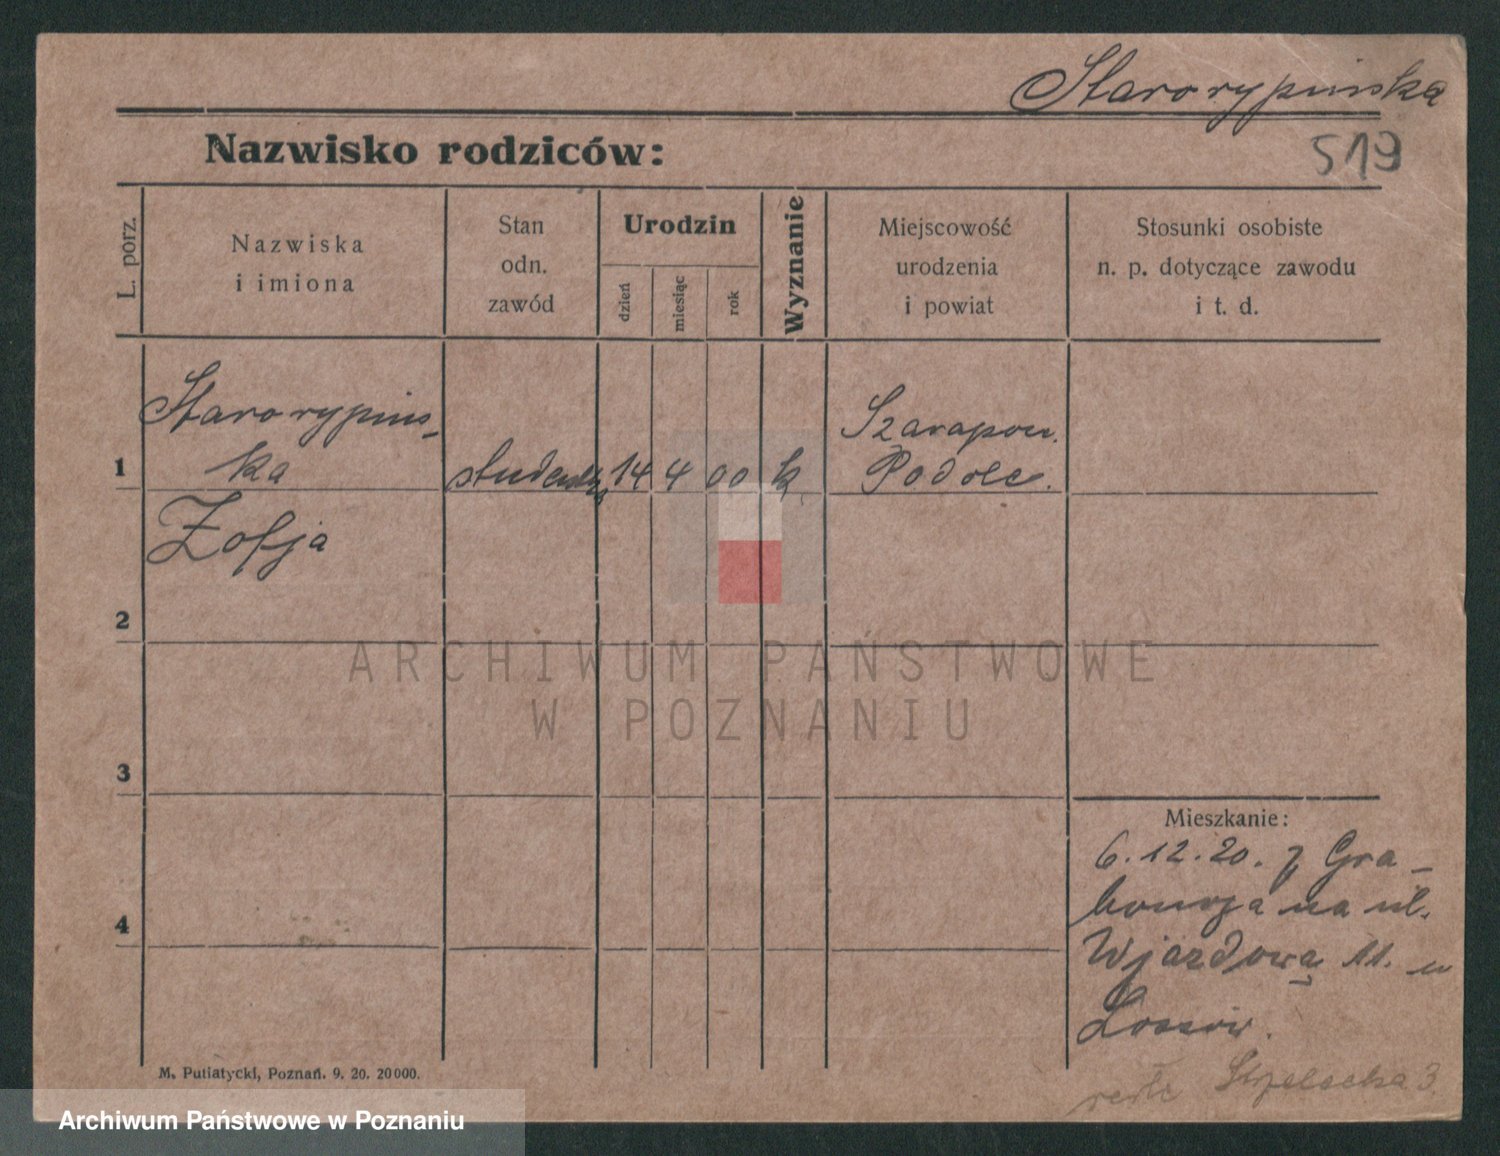 Starorypińska
Nazwisko rodziców:
519
L. porz.
Nazwiska
i imiona
Stan
odn.
zawód
Urodzin
dzień
miesiąc
rok
Wyznanie
Miejscowość
urodzenia
i powiat
Stosunki osobiste
n. p. dotyczące zawodu
i t. d.
Starorypińs-
ka
1
studentka 14 4 00 k.
Podole.
Zofja
2
ARCHIWUM PAŃSTWOWE
W POZNANIU
3
Mieszkanie:
6.12.20. z Gra-
bowa na ul.
4
Wjazdową 11. u
Lossów.
M. Putiatycki, Poznań. 9. 20. 20000.
Strzelecka 3
Archiwum Państwowe w Poznaniu